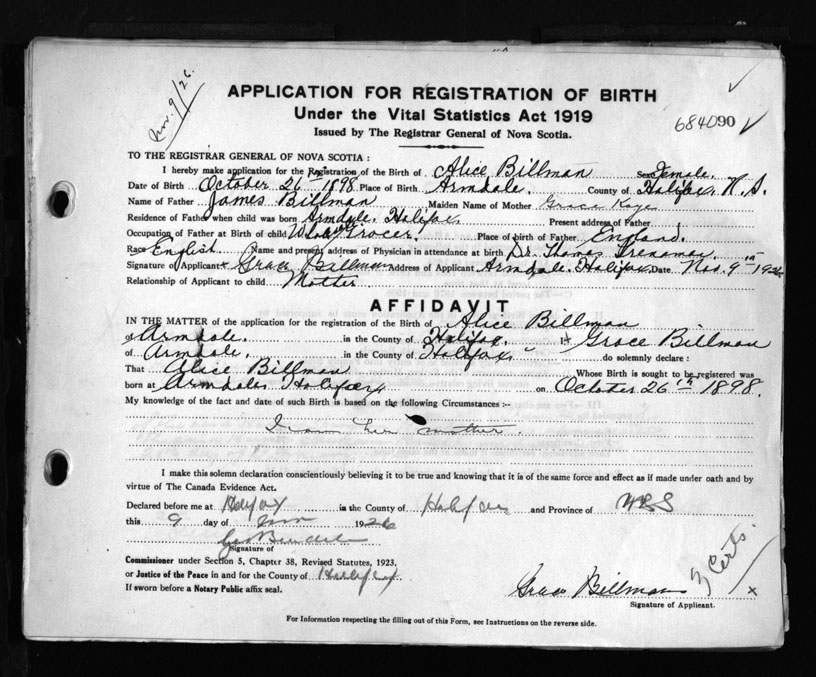 Nov. 9/26.
APPLICATION FOR REGISTRATION OF BIRTH
Under the Vital Statistics Act 1919
68409090
Issued by The Registrar General of Nova Scotia.
TO THE REGISTRAR GENERAL OF NOVA SCOTIA :
I hereby make application for the Registration of the Birth of Alice Billman Sex Female.
Date of Birth October 26th 1898. Place of Birth Armdale. County of Halifax, N.S.
Name of Father James Billman Maiden Name of Mother Grace Kaye
Residence of Father when child was born Armdale, Halifax Present address of Father
Occupation of Father at Birth of child Grocer. Place of birth of Father England.
Race English. Name and present address of Physician in attendance at birth Dr. Thomas Trenaman
Signature of Applicant x Grace Billman Address of Applicant Armdale, Halifax, Date Nov. 9th 1926.
Relationship of Applicant to child Mother.
AFFIDAVIT
IN THE MATTER of the application for the registration of the Birth of Alice Billman
of Armdale. in the County of Halifax. I x Grace Billman
of Armdale. in the County of Halifax do solemnly declare :
That Alice Billman Whose Birth is sought to be registered was
born at Armdale, Halifax on October 26th 1898.
My knowledge of the fact and date of such Birth is based on the following Circumstances :-
I am her mother.
I make this solemn declaration conscientiously believing it to be true and knowing that it is of the same force and effect as if made under oath and by
virtue of The Canada Evidence Act.
Declared before me at Halifax in the County of Halifax and Province of
this 9 day of Nov 1926
Signature of
Commissioner under Section 5, Chapter 38, Revised Statutes, 1923,
or Justice of the Peace in and for the County of Halifax
If sworn before a Notary Public affix seal.
Grace Billman x
Signature of Applicant.
Certs.
For Information respecting the filling out of this Form, see Instructions on the reverse side.